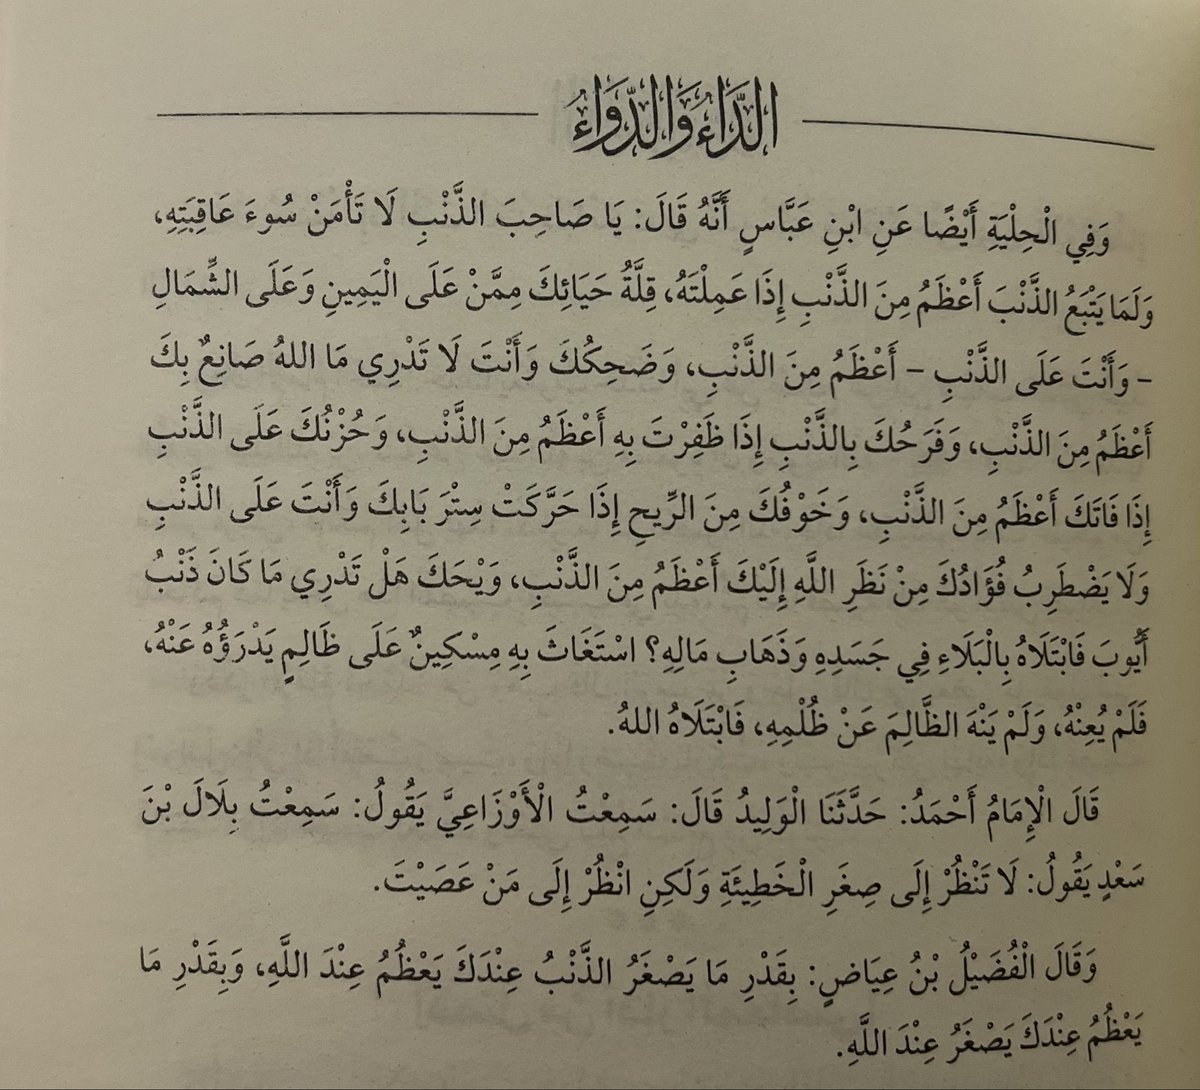 الدَّاءُ وَالدَّوَاءُ
وَفِي الْحِلْيَةِ أَيْضًا عَنِ ابْنِ عَبَّاسٍ أَنَّهُ قَالَ: يَا صَاحِبَ الذَّنْبِ لَا تَأْمَنْ سُوءَ عَاقِبَتِهِ،
وَلَمَا يَتْبَعُ الذَّنْبَ أَعْظَمُ مِنَ الذَّنْبِ إِذَا عَمِلْتَهُ، قِلَّةُ حَيَائِكَ مِمَّنْ عَلَى الْيَمِينِ وَعَلَى الشِّمَالِ
– وَأَنْتَ عَلَى الذَّنْبِ – أَعْظَمُ مِنَ الذَّنْبِ، وَضَحِكُكَ وَأَنْتَ لَا تَدْرِي مَا اللهُ صَانِعٌ بِكَ
أَعْظَمُ مِنَ الذَّنْبِ، وَفَرَحُكَ بِالذَّنْبِ إِذَا ظَفِرْتَ بِهِ أَعْظَمُ مِنَ الذَّنْبِ، وَحُزْنُكَ عَلَى الذَّنْبِ
إِذَا فَاتَكَ أَعْظَمُ مِنَ الذَّنْبِ، وَخَوْفُكَ مِنَ الرِّيحِ إِذَا حَرَّكَتْ سِتْرَ بَابِكَ وَأَنْتَ عَلَى الذَّنْبِ
وَلَا يَضْطَرِبُ فُؤَادُكَ مِنْ نَظَرِ اللَّهِ إِلَيْكَ أَعْظَمُ مِنَ الذَّنْبِ، وَيْحَكَ هَلْ تَدْرِي مَا كَانَ ذَنْبُ
أَيُّوبَ فَابْتَلَاهُ بِالْبَلَاءِ فِي جَسَدِهِ وَذَهَابِ مَالِهِ؟ اسْتَغَاثَ بِهِ مِسْكِينٌ عَلَى ظَالِمٍ يَدْرَؤُهُ عَنْهُ،
فَلَمْ يُعِنْهُ، وَلَمْ يَنْهَ الظَّالِمَ عَنْ ظُلْمِهِ، فَابْتَلَاهُ اللهُ.
قَالَ الْإِمَامُ أَحْمَدُ: حَدَّثَنَا الْوَلِيدُ قَالَ: سَمِعْتُ الْأَوْزَاعِيَّ يَقُولُ: سَمِعْتُ بِلَالَ بْنَ
سَعْدٍ يَقُولُ: لَا تَنْظُرْ إِلَى صِغَرِ الْخَطِيئَةِ وَلَكِنِ انْظُرْ إِلَى مَنْ عَصَيْتَ.
وَقَالَ الْفُضَيْلُ بْنُ عِيَاضٍ: بِقَدْرِ مَا يَصْغَرُ الذَّنْبُ عِنْدَكَ يَعْظُمُ عِنْدَ اللَّهِ، وَبِقَدْرِ مَا
يَعْظُمُ عِنْدَكَ يَصْغَرُ عِنْدَ اللَّهِ.